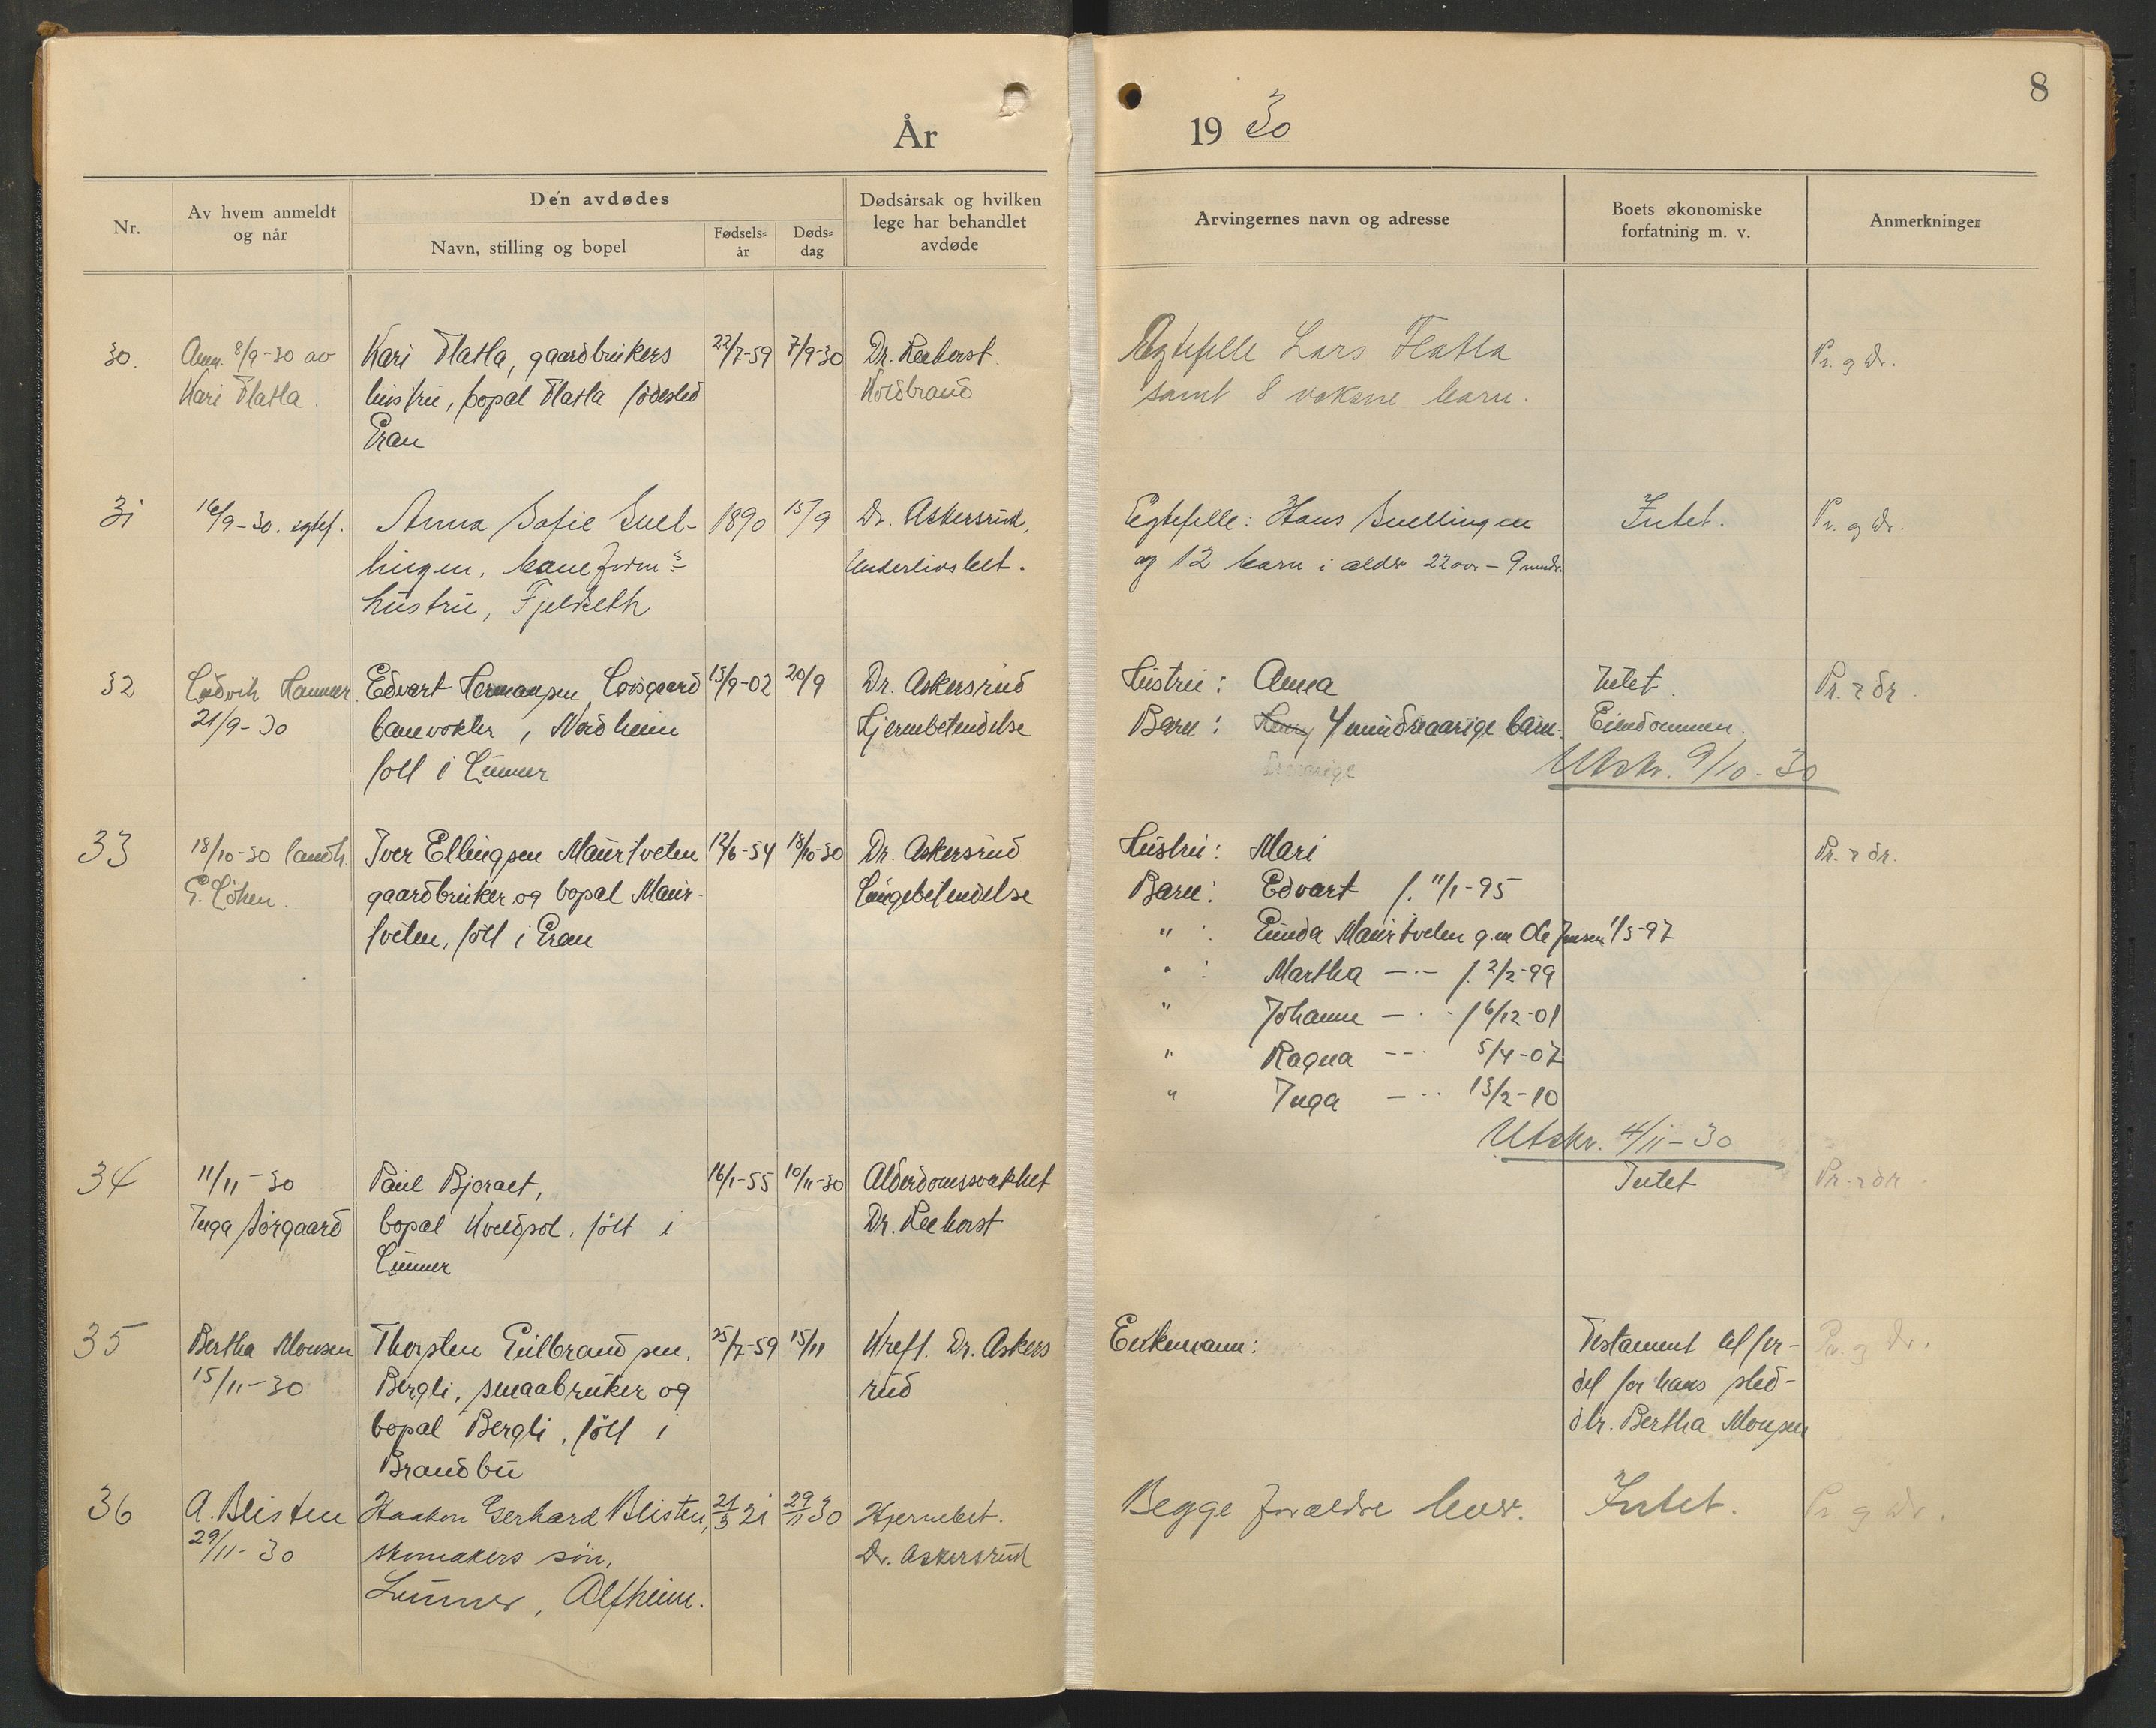 8
År 19 30
Nr.
Av hvem anmeldt
og når
Den avdødes
Navn, stilling og bopel
Fødsels-
år
Døds-
dag
Dødsårsak og hvilken
lege har behandlet
avdøde
Arvingernes navn og adresse
Boets økonomiske
forfatning m. v.
Anmerkninger
30.
Anm. 8/9-30 av
Kari Flatla.
Kari Flatla, gaardbrukers
hustru, bopal Flatla fødested
Gran
22/7-59
7/9-30
Dr. Reehorst.
Koldbrand
Ægtefelle Lars Flatla
samt 8 voksne barn.
Pr. og Dr.
31
16/9-30. egtef.
Anna Sofie Snel-
lingen, baneform.s
hustru, Fjeldseth
1890
15/9
Dr. Askersrud,
Underlivsbet.
Egtefelle: Hans Snellingen
og 12 barn i alder 22 aar - 9 mndr.
Intet.
Pr. og Dr.
32
Ludvik Hammer.
21/9-30
Edvart Hermansen Lovsgaard
banevokter, Nordheim
født i Lunner
15/9-02
20/9
Dr. Askersrud
Hjernebetendelse
Hustru: Anna
Barn: Henry 4 mindreaarige barn.
Intet.
Eiendommen.
Utskr. 9/10-30
Pr. & dr.
33
18/10-30 landh.
G. Løken.
Iver Ellingsen Maurtveten
gaardbruker og bopal Maur-
tveten, født i Gran
12/6-54
18/10-30
Dr. Askersrud
Lungebetendelse
Hustru: Mari
Barn: Edvart f. 11/1-95
" : Gunda Maurtveten g.m Ole Jensen 1/5-97
" : Martha -·- f. 2/2-99
" Johanne -·- f 6/12-01
" Ragna -- 5/4-07
" Inga -·· 13/2-10
Utskr. 4/11-30
Pr. & dr.
34
11/11-30
Inga Sørgaard
Paul Bjoraet,
bopal Kveldsol, født i
Lunner
16/1-55
10/11-30
Alderdomssvakhet
Dr. Reehorst
Intet
Pr. & dr.
35
Bertha Monsen
15/11-30
Thorsten Gulbrandsen,
Bergli, smaabruker og
bopal Bergli, født i
Brandbu
25/7-59
15/11
Kreft. Dr. Askers
rud
Enkemann:
Testament til for-
del for hans sted-
dtr. Bertha Monsen
Pr. og Dr.
36
A. Blisten
29/11-30
Haakon Gerhard Blisten,
skomakers søn,
Lunner, Alfheim.
21/3 21
29/11 30
Hjernebet.
Dr. Askersrud
Begge forældre lever.
Intet.
Pr. og Dr.